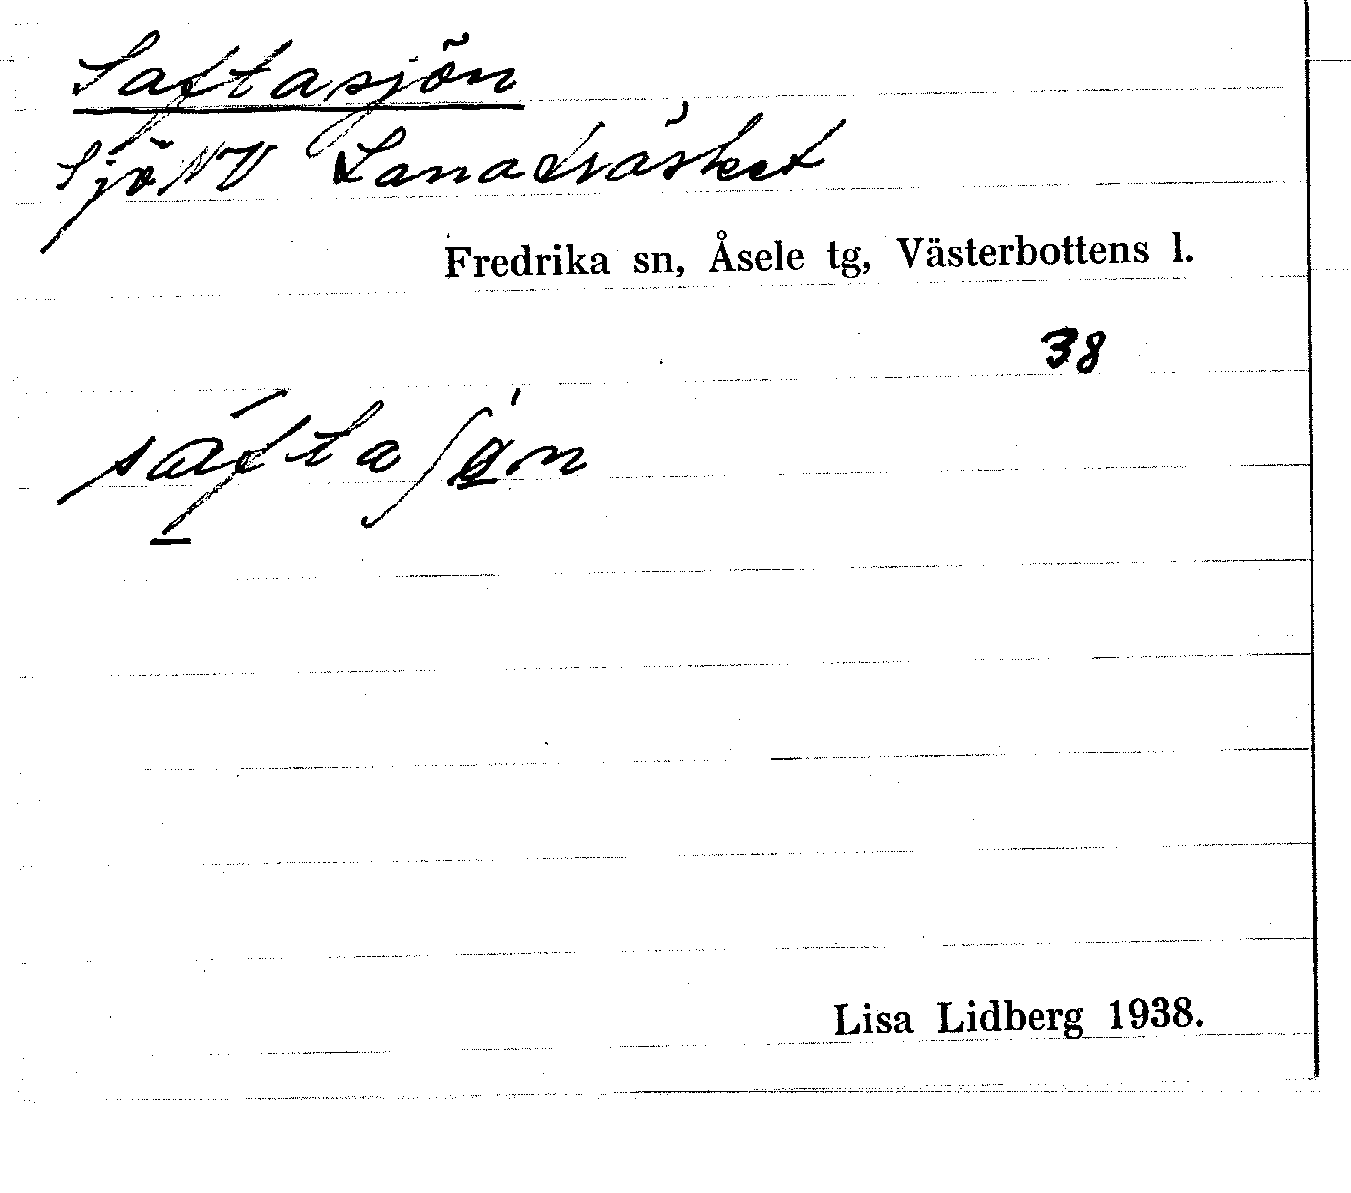 Saftasjön
Sjö NV Lanaträsket
Fredrika sn, Åsele tg, Västerbottens l.
38
Lisa Lidberg 1938.